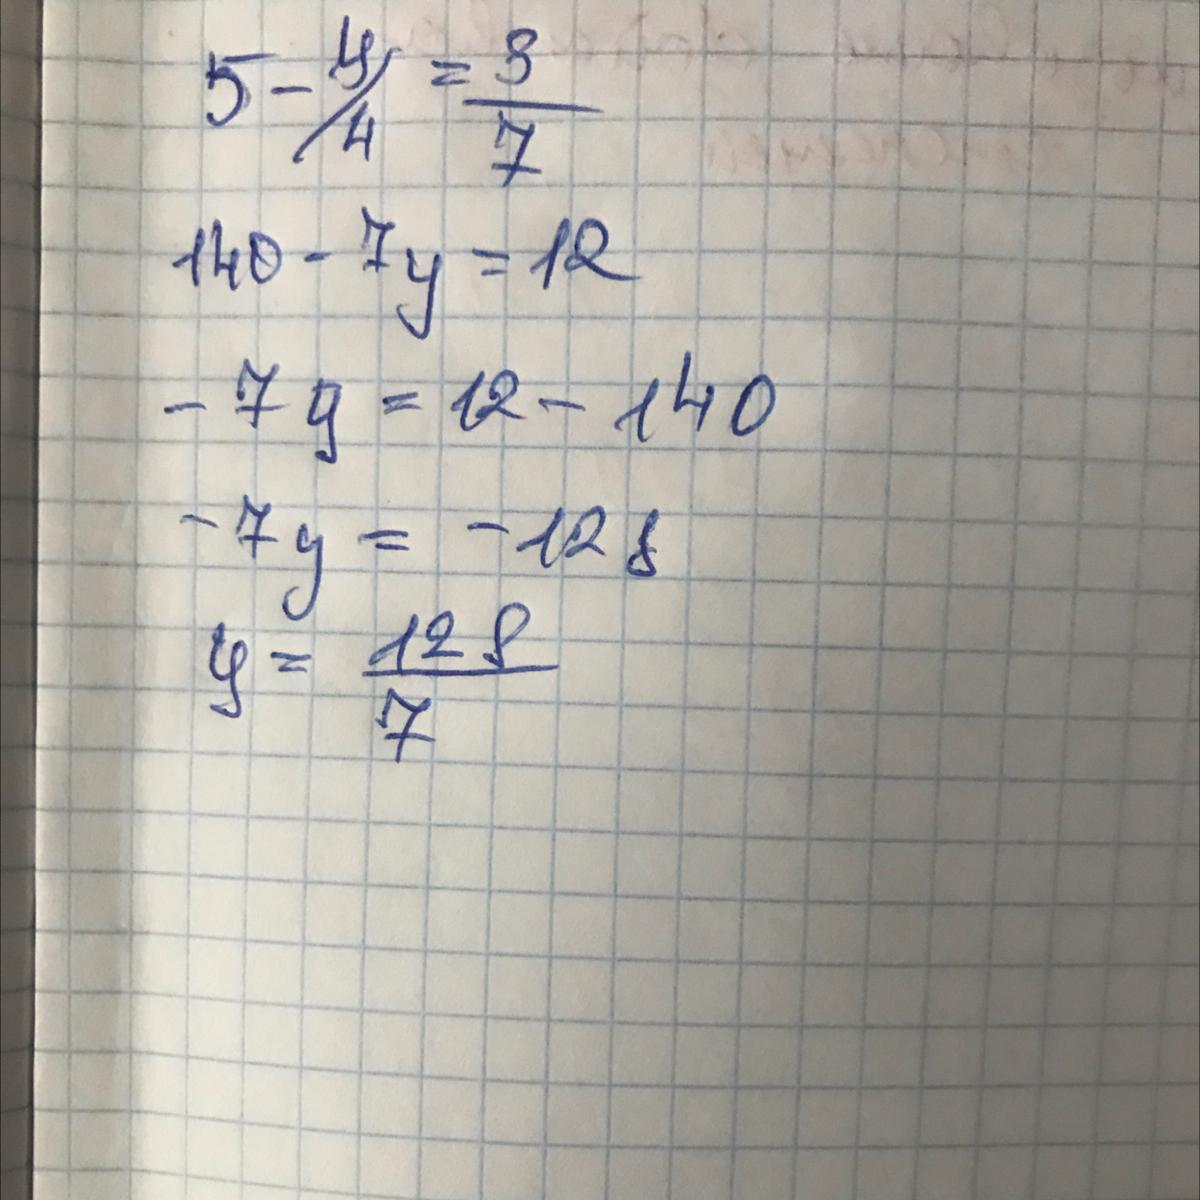 5 - y/4 = 3/7
140 - 7y = 12
- 7y = 12 - 140
- 7y = - 128
y = 128/7